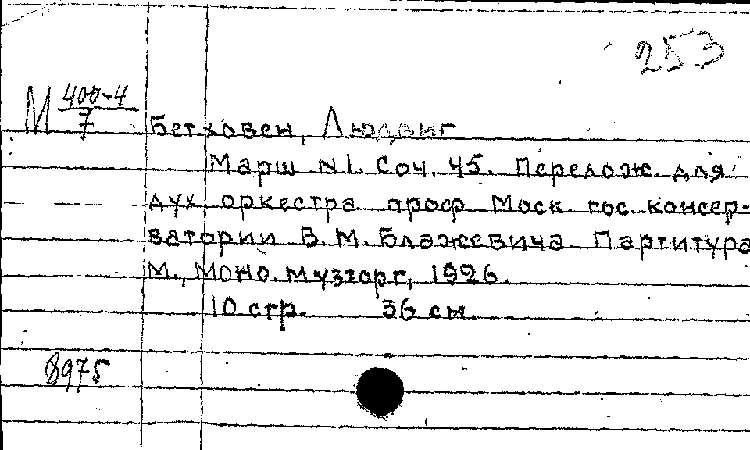 253
М 400-4
7
Бетховен, Людвиг
Марш N1. Соч. 45. Перелож. для
дух оркестра проф Моск. гос. консер-
ватории В. М. Блажевича Партитура
М., Моно. музторг, 1926.
10 стр. 36 см.
8975